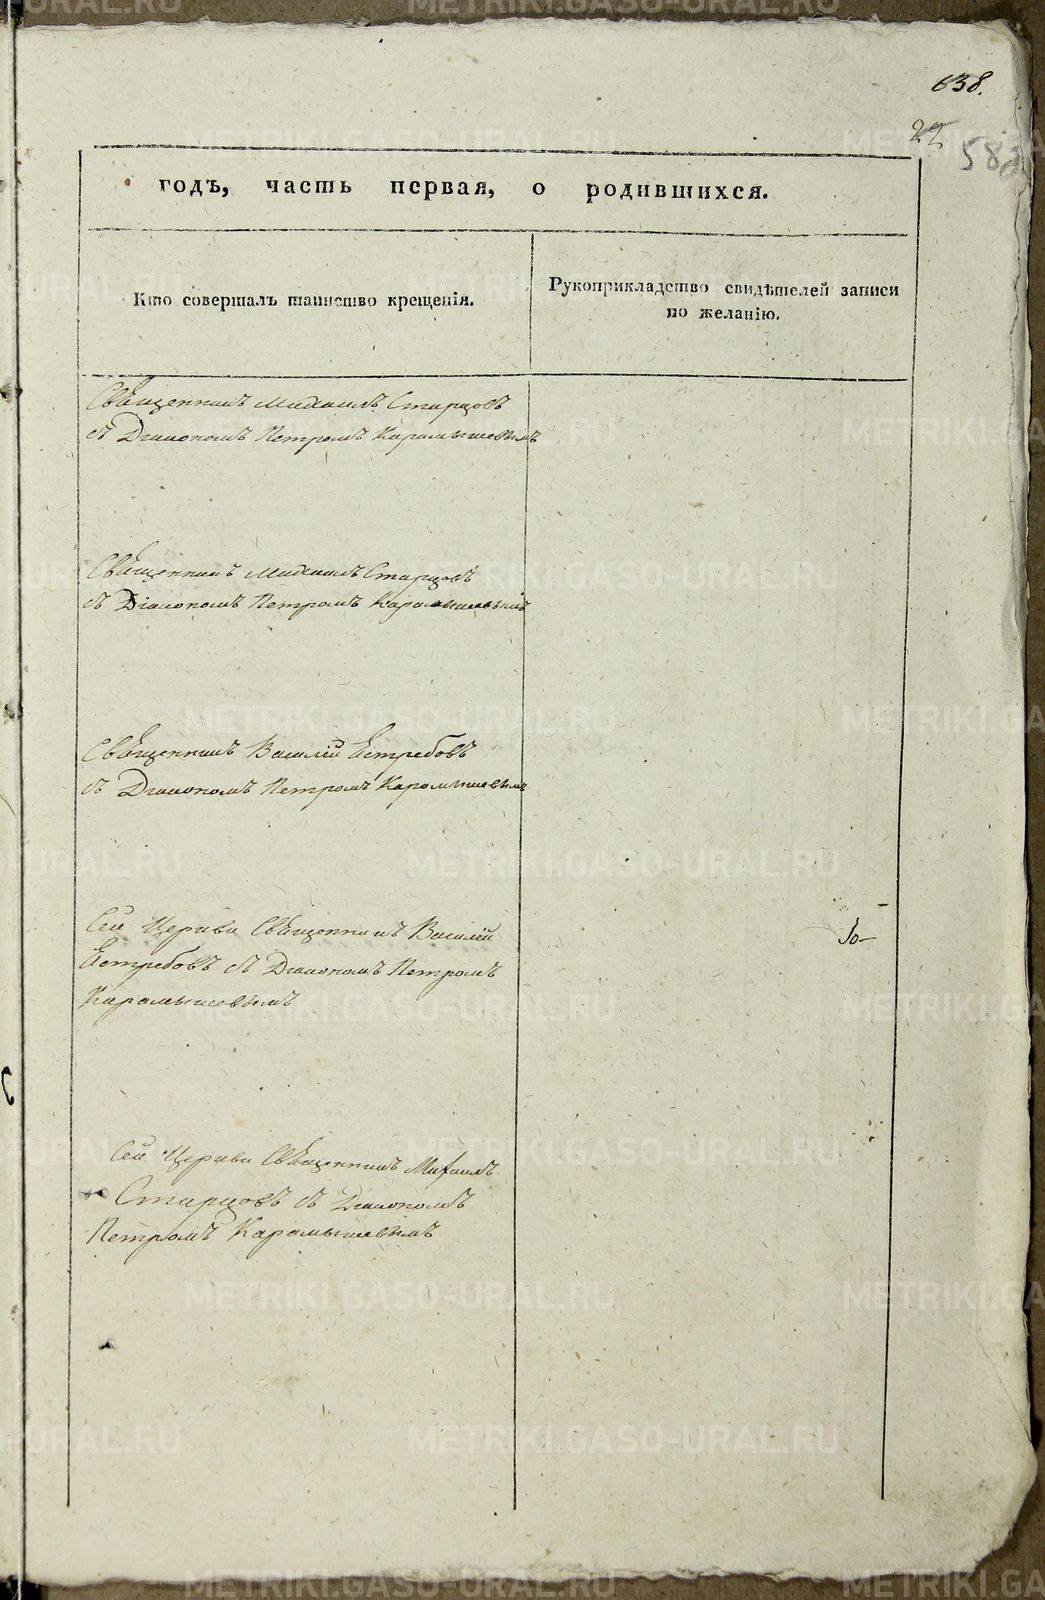 638.
22
583
годъ, часть первая, о родившихся.
Кто совершалъ таинство крещенія.
Рукоприкладство свидѣтелей записи
по желанію.
Священникъ Михаилъ Старцовъ
съ Діакономъ Петромъ Карамышевымъ
Священникъ Михаилъ Старцовъ
съ Діакономъ Петромъ Карамышевымъ
Священникъ Василій Ястребовъ
съ Діакономъ Петромъ Карамышевымъ
Сей Церкви Священникъ Василій
Ястребовъ съ Діакономъ Петромъ
Карамышевымъ
Сей Церкви Священникъ Михаилъ
Старцовъ съ Діакономъ
Петромъ Карамышевымъ
METRIKI.GASO-URAL.RU